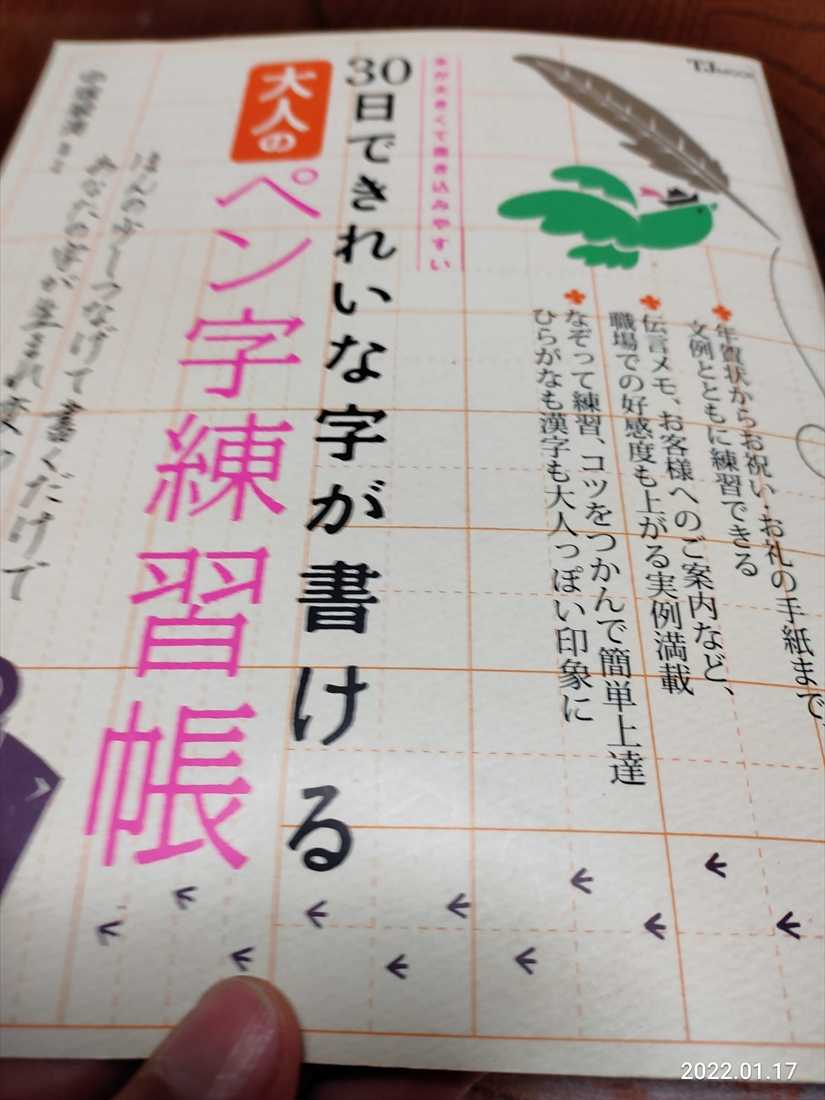 TJ MOOK
年賀状からお祝い・お礼の手紙まで、
文例とともに練習できる
伝言メモ、お客様へのご案内など、
職場での好感度も上がる実例満載
なぞって練習、コツをつかんで簡単上達
ひらがなも漢字も大人っぽい印象に
ますが大きくて書き込みやすい
30日できれいな字が書ける
大人の
ペン字練習帳
ほんの少しつなげて書くだけで
あなたの字が生まれ変わ
2022.01.17